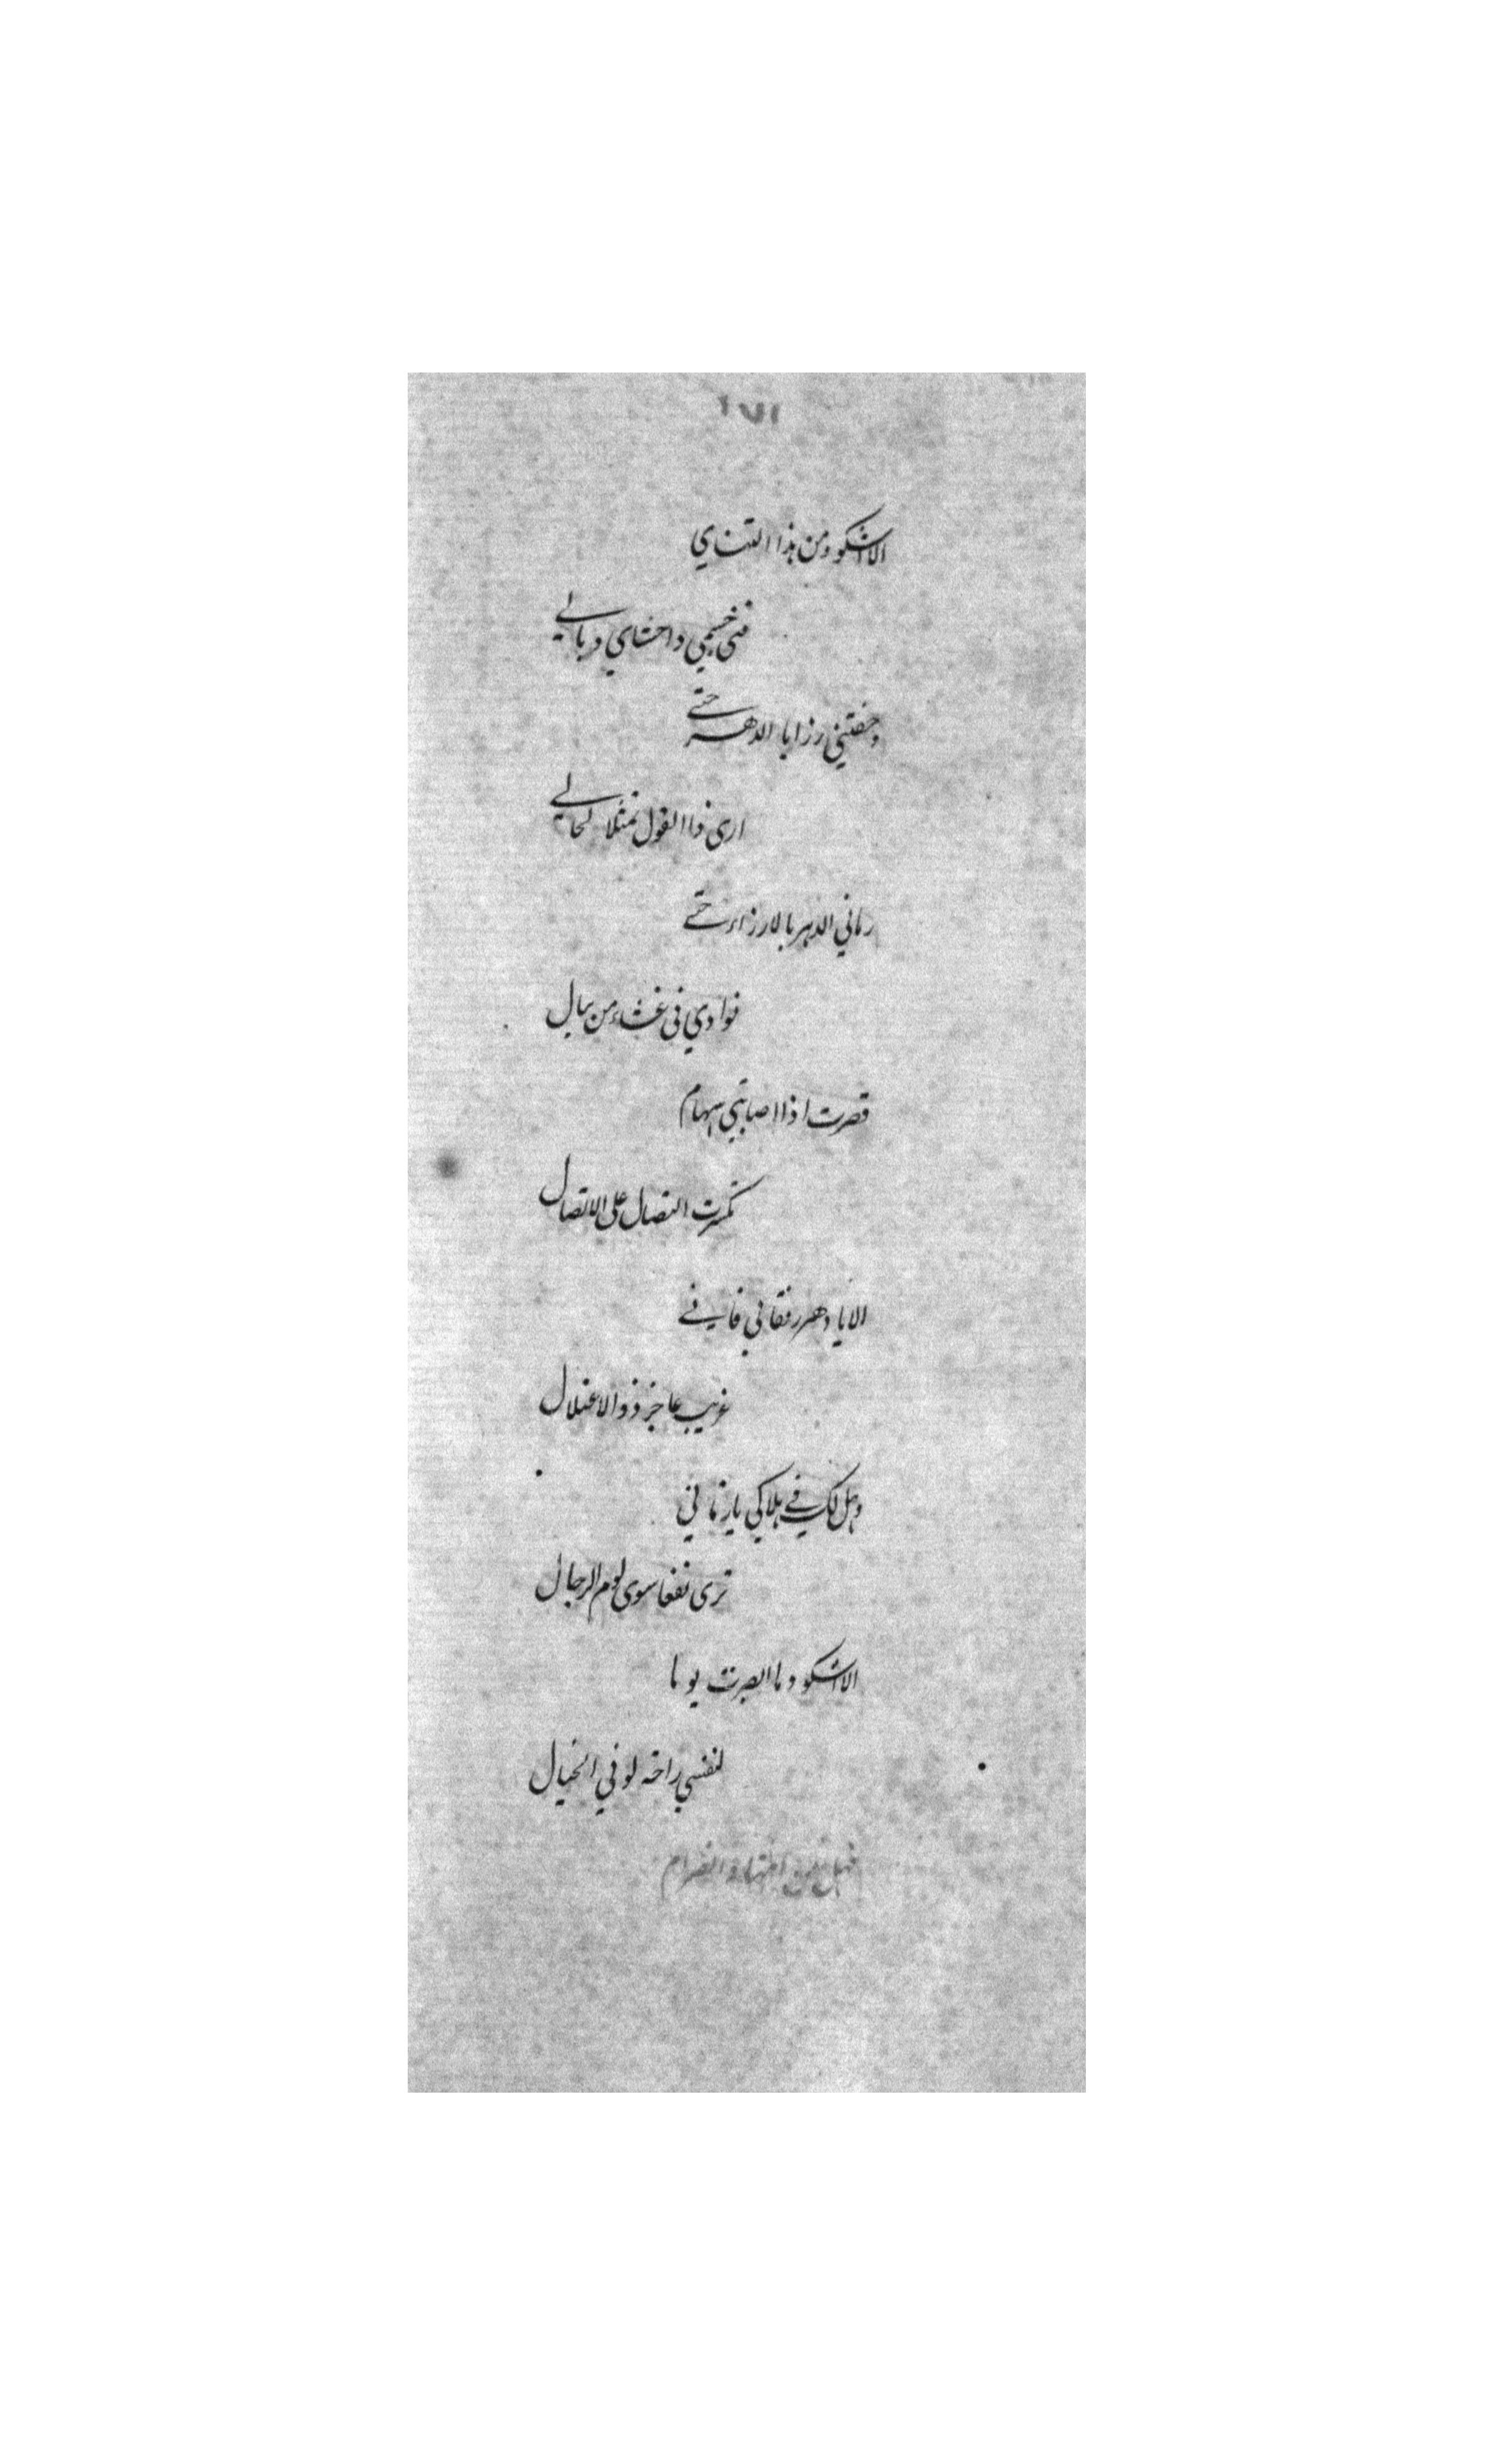 ١٧١
الا اشكو ومن هذا التنادي
فنى جسمي واحشاي وبالي
وخفتني رزايا الدهر حتى
ارى ذا القول تمثلا لحالي
رماني الدهر بالارزاء حتى
فوادي فى غشاء من نبال
فصرت اذا اصابتني سهام
تكسرت النصال على النصال
الا يا دهر رفقا بي فاني
غريب عاجز ذو الاعتلال
وهل لك في هلاكي يا زماني
ترى نفعا سوى لوم الرجال
الا اشكو وما ابصرت يوما
لنفسي راحة لو في الخيال